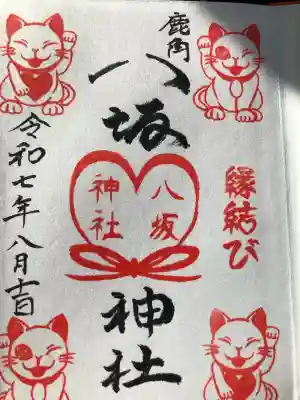 鹿角
八坂神社
八坂
神社
縁結び
令和七年八月十一日